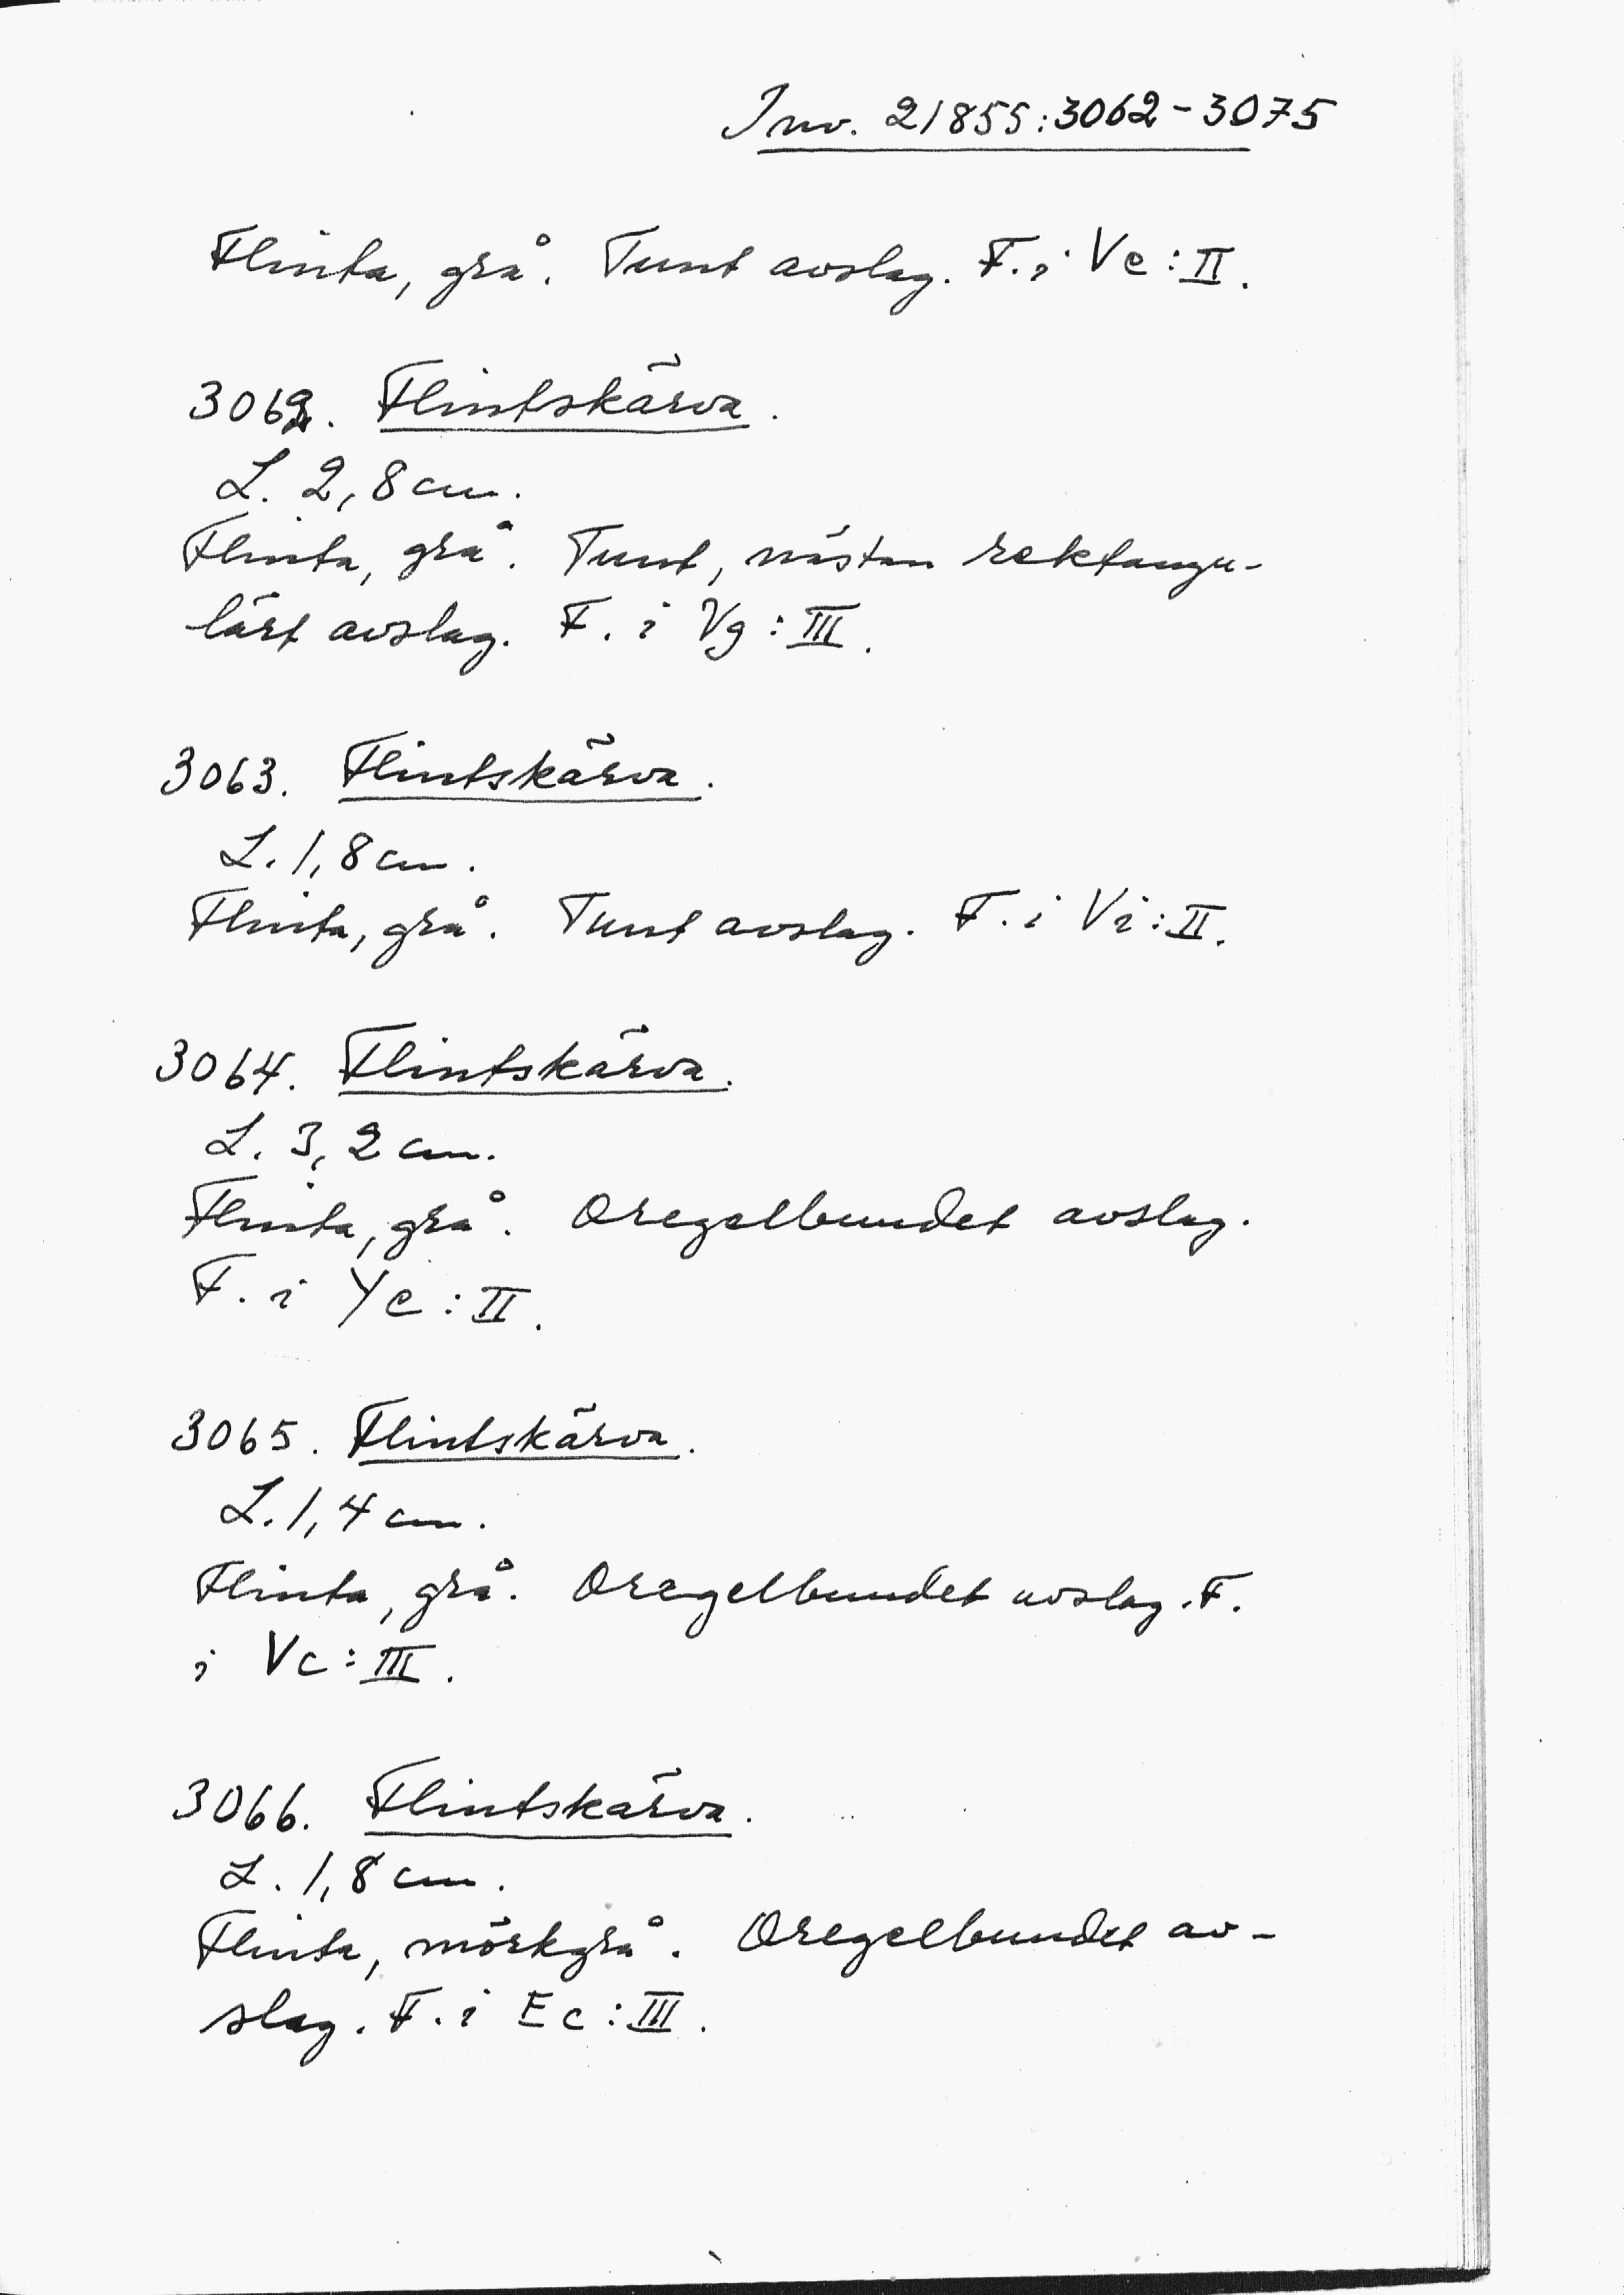 Inv. 21855:3062-3075
Flinta, grå. Tunt avslag. F. i Ve:II.
3062. Flintskärva.
L. 2,8 cm.
Flinta, grå. Tunt, nästan rektangu-
lärt avslag. F. i Vg:III.
3063. Flintskärva.
L. 1,8 cm.
Flinta, grå. Tunt avslag. F. i Vi:II.
3064. Flintskärva.
L. 3,2 cm.
Flinta, grå. Oregelbundet avslag.
F. i Ye:II.
3065. Flintskärva.
L. 1,4 cm.
Flinta, grå. Oregelbundet avslag. F.
i Vc:III.
3066. Flintskärva.
L. 1,8 cm.
Flinta, mörkgrå. Oregelbundet av-
slag. F. i Ec:III.